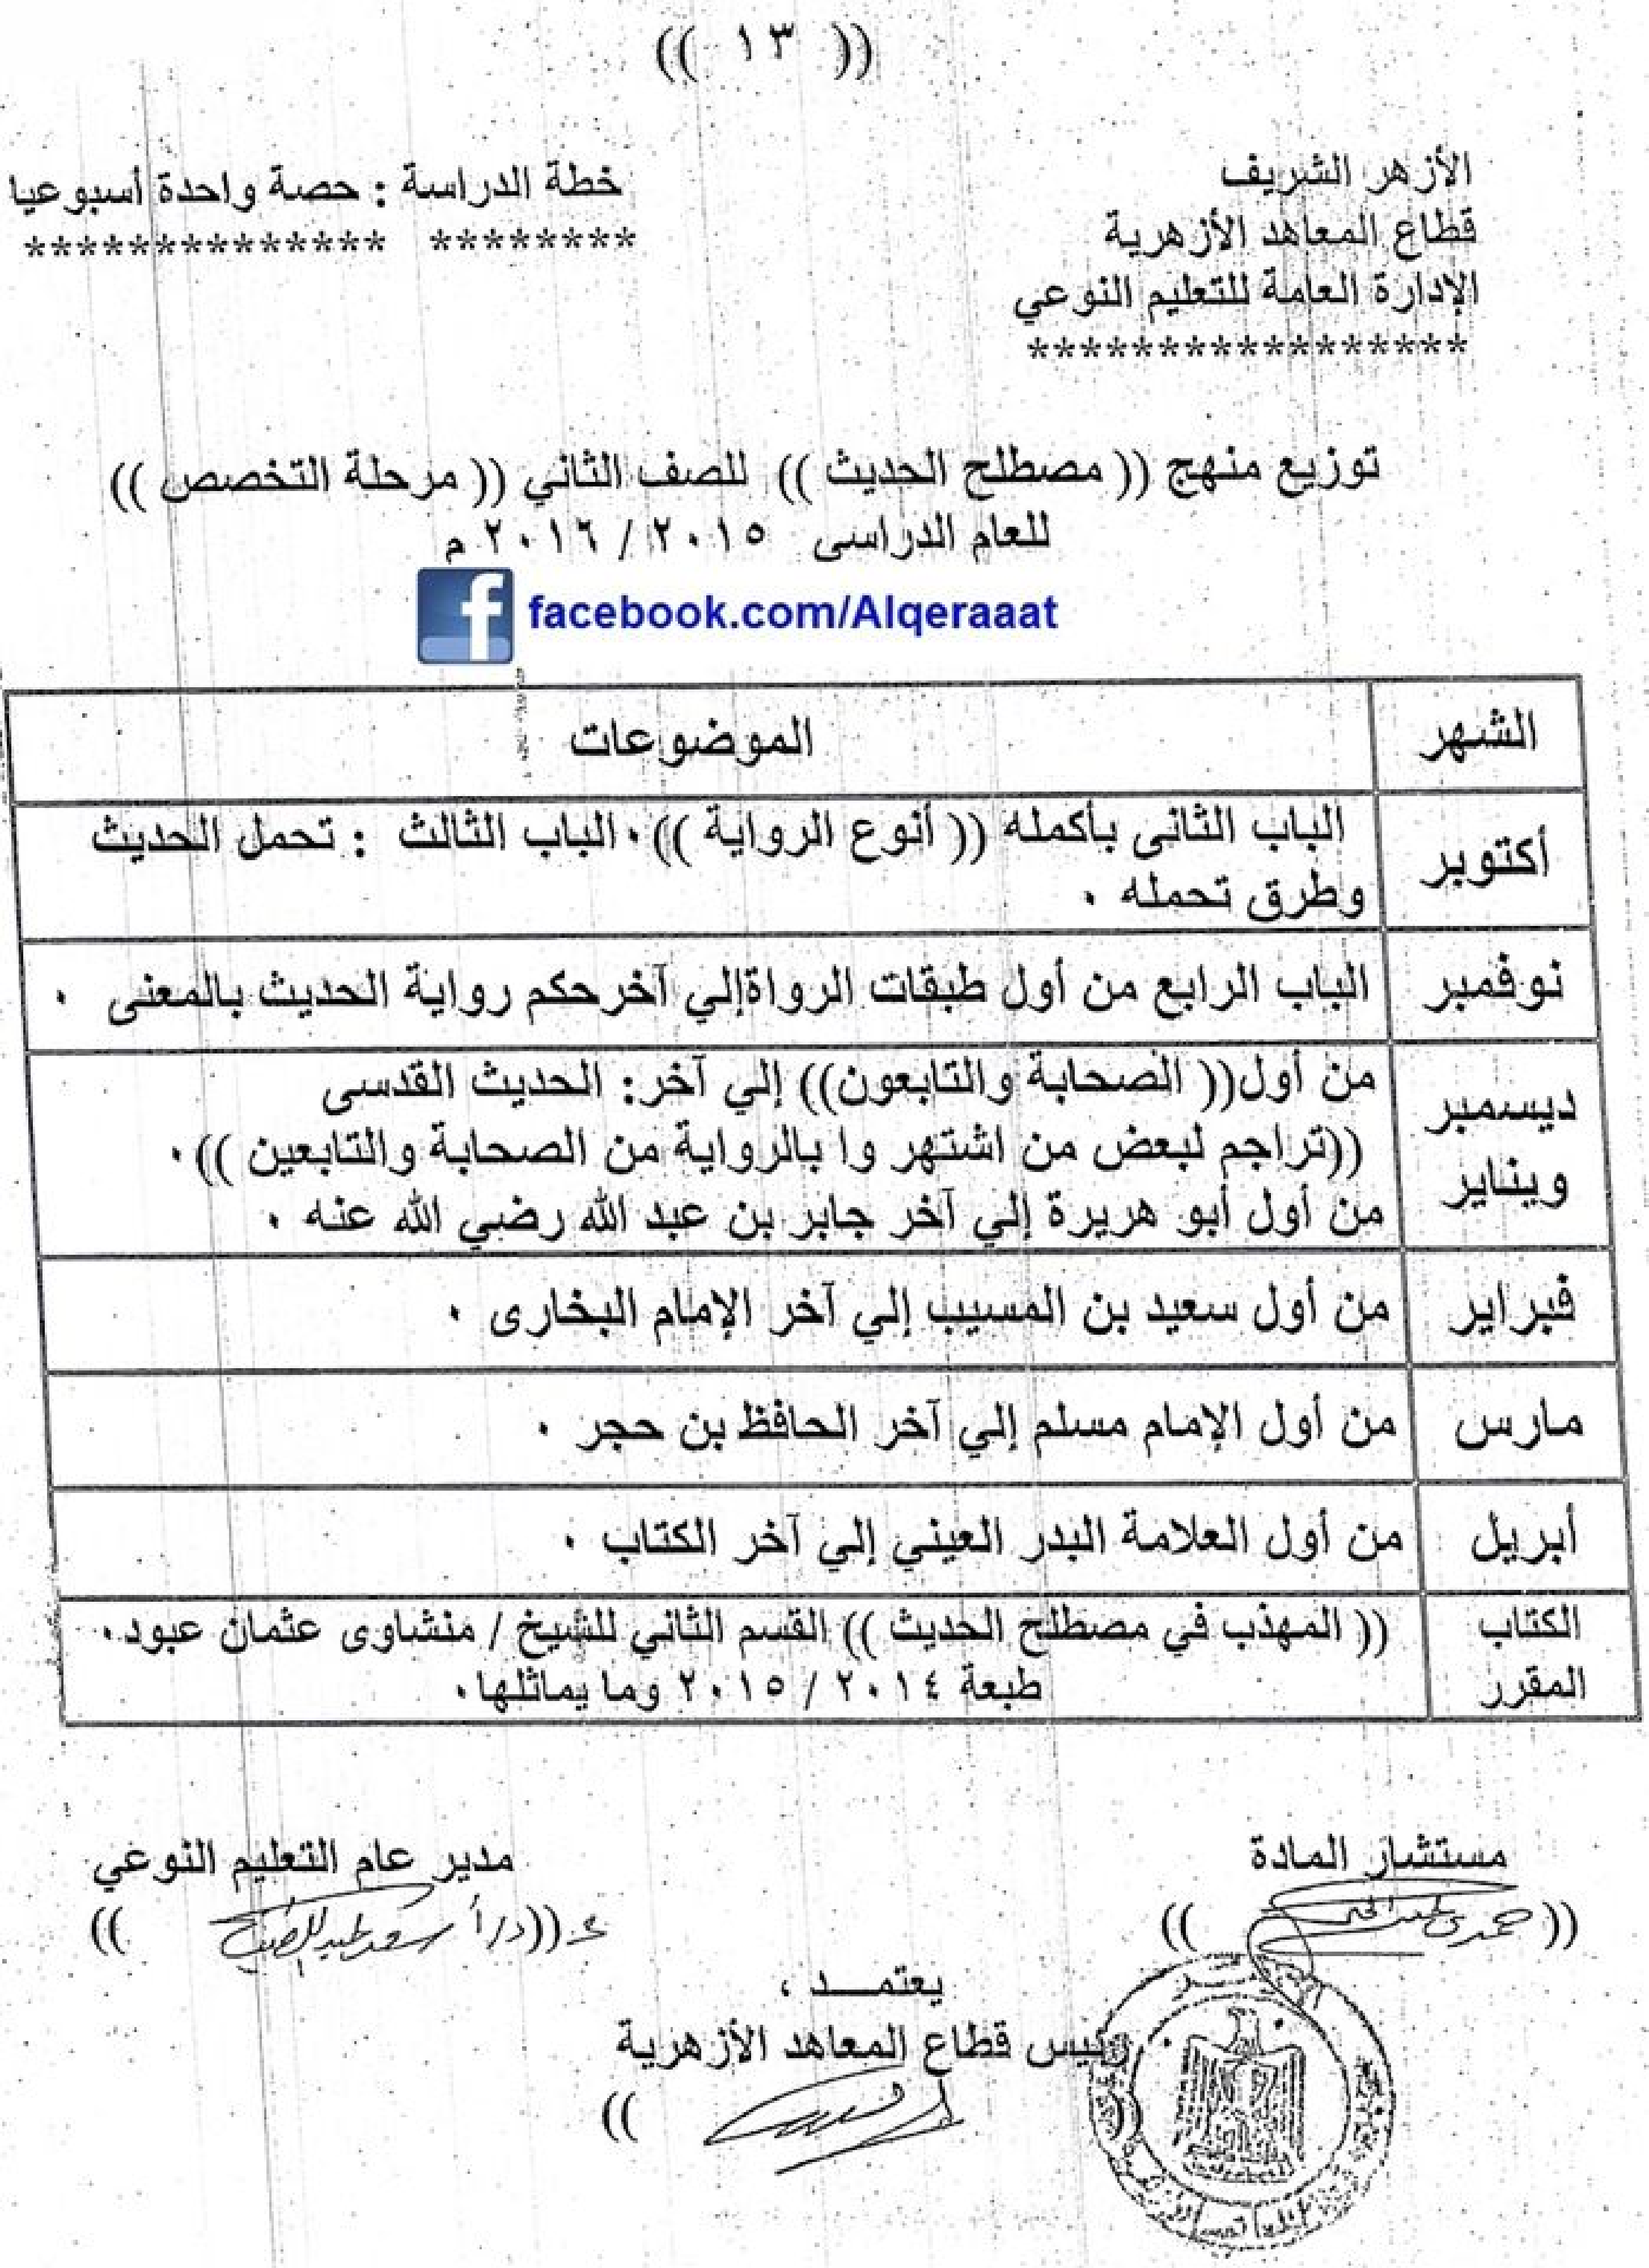 (( ١٣ ))
الأزهر الشريف
قطاع المعاهد الأزهرية
الإدارة العامة للتعليم النوعي
*****************
خطة الدراسة : حصة واحدة أسبوعيا
******** **************
توزيع منهج (( مصطلح الحديث )) للصف الثاني (( مرحلة التخصص ))
للعام الدراسى ٢٠١٥ / ٢٠١٦ م
facebook.com/Alqeraaat
الشهر الموضوعات
أكتوبر الباب الثانى بأكمله (( أنوع الرواية ))٠ الباب الثالث : تحمل الحديث
وطرق تحمله ٠
نوفمبر الباب الرابع من أول طبقات الرواةإلي آخرحكم رواية الحديث بالمعنى ٠
ديسمبر من أول(( الصحابة والتابعون)) إلي آخر: الحديث القدسى
((تراجم لبعض من اشتهر وا بالرواية من الصحابة والتابعين ))٠
ويناير من أول أبو هريرة إلي آخر جابر بن عبد الله رضي الله عنه ٠
فبراير من أول سعيد بن المسيب إلي آخر الإمام البخارى ٠
مارس من أول الإمام مسلم إلي آخر الحافظ بن حجر ٠
أبريل من أول العلامة البدر العيني إلي آخر الكتاب ٠
الكتاب (( المهذب في مصطلح الحديث )) القسم الثاني للشيخ / منشاوى عثمان عبود٠
المقرر طبعة ٢٠١٤ / ٢٠١٥ وما يماثلها٠
مستشار المادة
مدير عام التعليم النوعي
يعتمــد ،
رئيس قطاع المعاهد الأزهرية